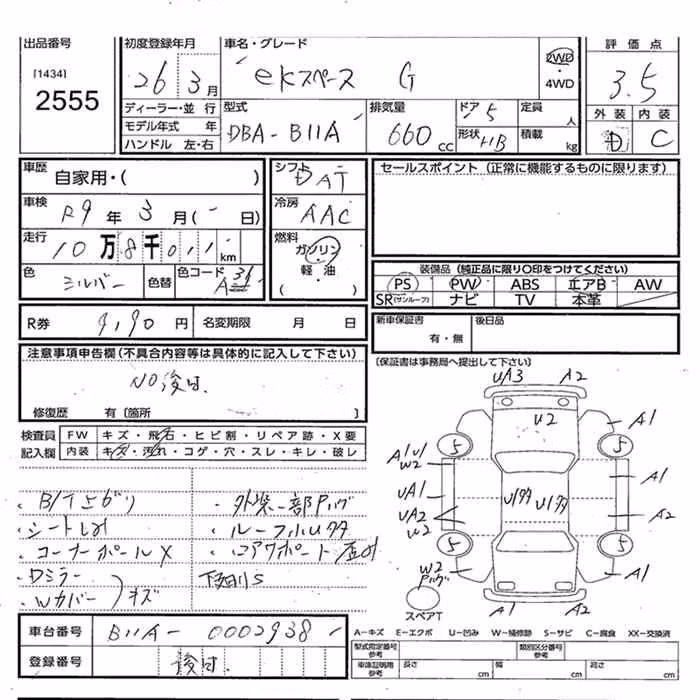 出品番号 初度登録年月 車名・グレード 評価点
[1434] 2555
26 3月 ekスペース G 2WD・4WD 3.5
ディーラー・並行 型式 排気量 ドア 5 定員 人 外装 内装
モデル年式 年 DBA-B11A 660cc 形状 HB 積載 kg D C
ハンドル 左・右
車歴 自家用・( ) シフト DAT セールスポイント (正常に機能するものに限ります)
車検 R9年3月(-日) 冷房 AAC
走行 10万8千011km 燃料 ガソリン・軽油 ( )
装備品 (純正品に限り○印をつけてください)
色 シルバー 色替 色コード A31 PS PW ABS エアB AW
SR(サンルーフ) ナビ TV 本革
R券 9,190円 名変期限 月 日 新車保証書 有・無 後日品
注意事項申告欄(不具合内容等は具体的に記入して下さい) (保証書は事務局へ提出して下さい)
NO後日.
修復歴 有〔箇所 〕
検査員記入欄 FW キズ・飛石・ヒビ割・リペア跡・X要
内装 キズ・汚れ・コゲ・穴・スレ・キレ・破レ
UA3 A2
U2 A1
5 5
A1U1 W2 A1
UA1 U1タタ U1タタ
UA2 A2
U2
5 5
W2 A1
A1 A2
スペアT
・B/Tさびり ・外装一部Pハゲ
・シートしみ ・ルーフ小Uタタ
・コーナーポールX
・Dミラー 下廻りS
・Wカバー )キズ
車台番号 B11A-0002938
登録番号 後日.
A-キズ E-エクボ U-凹み W-補修跡 S-サビ C-腐食 XX-交換済
型式指定番号 参考 類別区分番号 参考
車庫証明用 参考 長さ cm 幅 cm 高さ cm